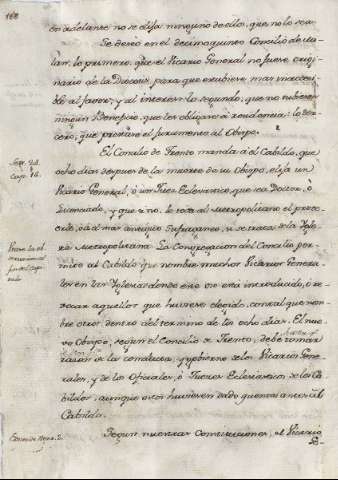 168
en adelante no se elija ninguno de ellos, que no lo sea.
Se deció en el decimoquinto Concilio de
lan, lo primero, que el Vicario General no fuese origi-
nario de la Diocesis, para que estubiese mas inacce-
ible al favor, y al interes: lo segundo, que no tubiese
ningun Beneficio, que les obligare à residencia: lo ter-
cero, que prestase el juramento al Obispo.
El Concilio de Trento manda á el Cabildo, que
ocho dias despues de la muerte de su Obispo, elija un
Vicario General, ò un Juez Eclesiastico, que sea Doctor, ò
Licenciado, y que si no, le toca al Metropolitano el
ò al mas antiguo Sufraganeo, si se trata de la Igle-
sia Metropolitana. La Congregacion del Concilio per-
mitio al Cabildo que nombre muchos Vicarios Genera-
les en las Iglesias donde esto està introducido, ò re-
vocar aquellos que huviese elegido, con tal que nom-
bre otros dentro del termino de los ocho dias. El nue-
vo Obispo, segun el Concilio de Trento, debe tomar
razon de la conducta, y gobierno de los Vicarios Gene-
rales, y de los Oficiales, ò Jueces Eclesiasticos de los Ca-
bildos, aunque estos huviesen dado quentas antes al
Cabildo.
Segun nuestras Constituciones, el Vicario
Sess. 24.
Cap. 16.